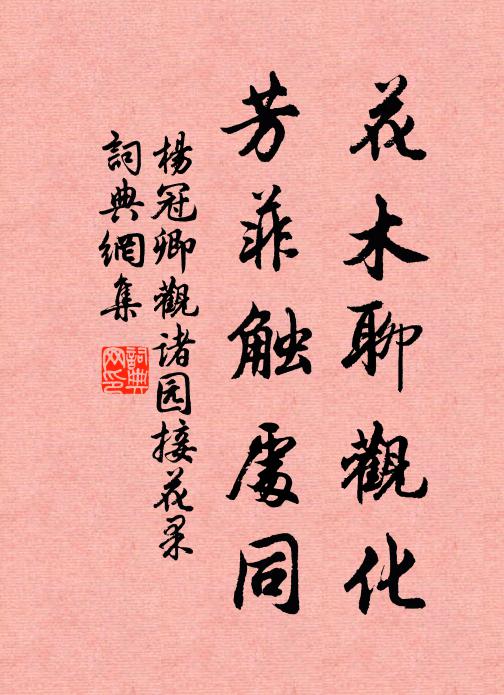 花木聊觀化
芳菲触處同
楊冠卿觀诸园接花果
詞典網集
詞典網印